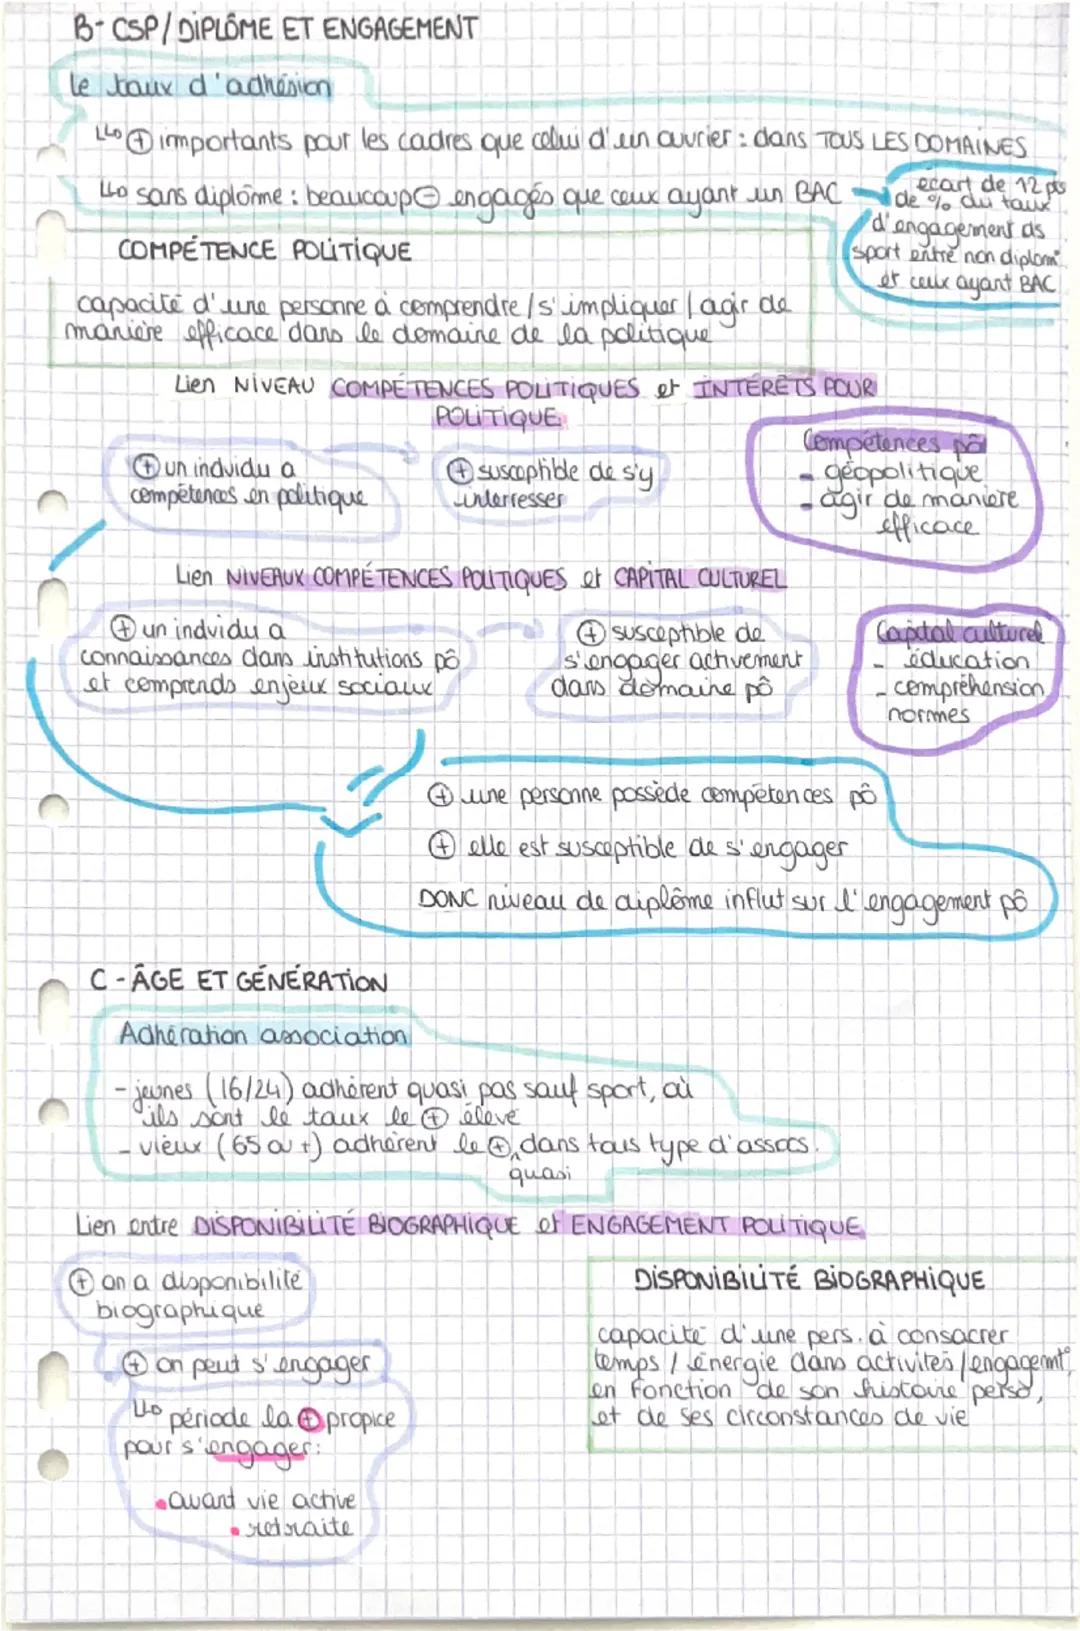 B- CSP/DIPLÔME ET ENGAGEMENT
le taux d'adhésion
↳ ⊕ importants pour les cadres que celui d'un ouvrier : dans TOUS LES DOMAINES
↳ sans diplôme : beaucoup ⊖ engagés que ceux ayant un BAC →
écart de 12 pts
de % du taux
d'engagement ds
sport entre non diplom
et ceux ayant BAC
COMPÉTENCE POLITIQUE
capacité d'une personne à comprendre / s'impliquer / agir de
manière efficace dans le domaine de la politique
Lien NIVEAU COMPÉTENCES POLITIQUES et INTÉRÊTS POUR
POLITIQUE
⊕ un indvidu a
compétences en politique
⊕ susceptible de s'y
interresser
Compétences pô
- géopolitique
- agir de manière
efficace
Lien NIVEAUX COMPÉTENCES POLITIQUES et CAPITAL CULTUREL
⊕ un indvidu a
connaissances dans institutions pô
et comprends enjeux sociaux
⊕ susceptible de
s'engager activement
dans domaine pô
Capital culturel
- éducation
- compréhension
normes
⊕ une personne possède compétences pô
⊕ elle est susceptible de s'engager
DONC niveau de diplôme influt sur l'engagement pô
C - ÂGE ET GÉNÉRATION
Adhération association
- jeunes (16/24) adhèrent quasi pas sauf sport, où
ils sont le taux le ⊕ élevé
- vieux (65 ou +) adhèrent le ⊕ dans tous type d'assos.
quasi
Lien entre DISPONIBILITÉ BIOGRAPHIQUE et ENGAGEMENT POLITIQUE
⊕ on a disponibilité
biographique
⊕ on peut s'engager
↳ période la ⊕ propice
pour s'engager :
• avant vie active
• retraite
DISPONIBILITÉ BIOGRAPHIQUE
capacité d'une pers. à consacrer
temps / énergie dans activités / engagemt
en fonction de son histoire perso,
et de ses circonstances de vie